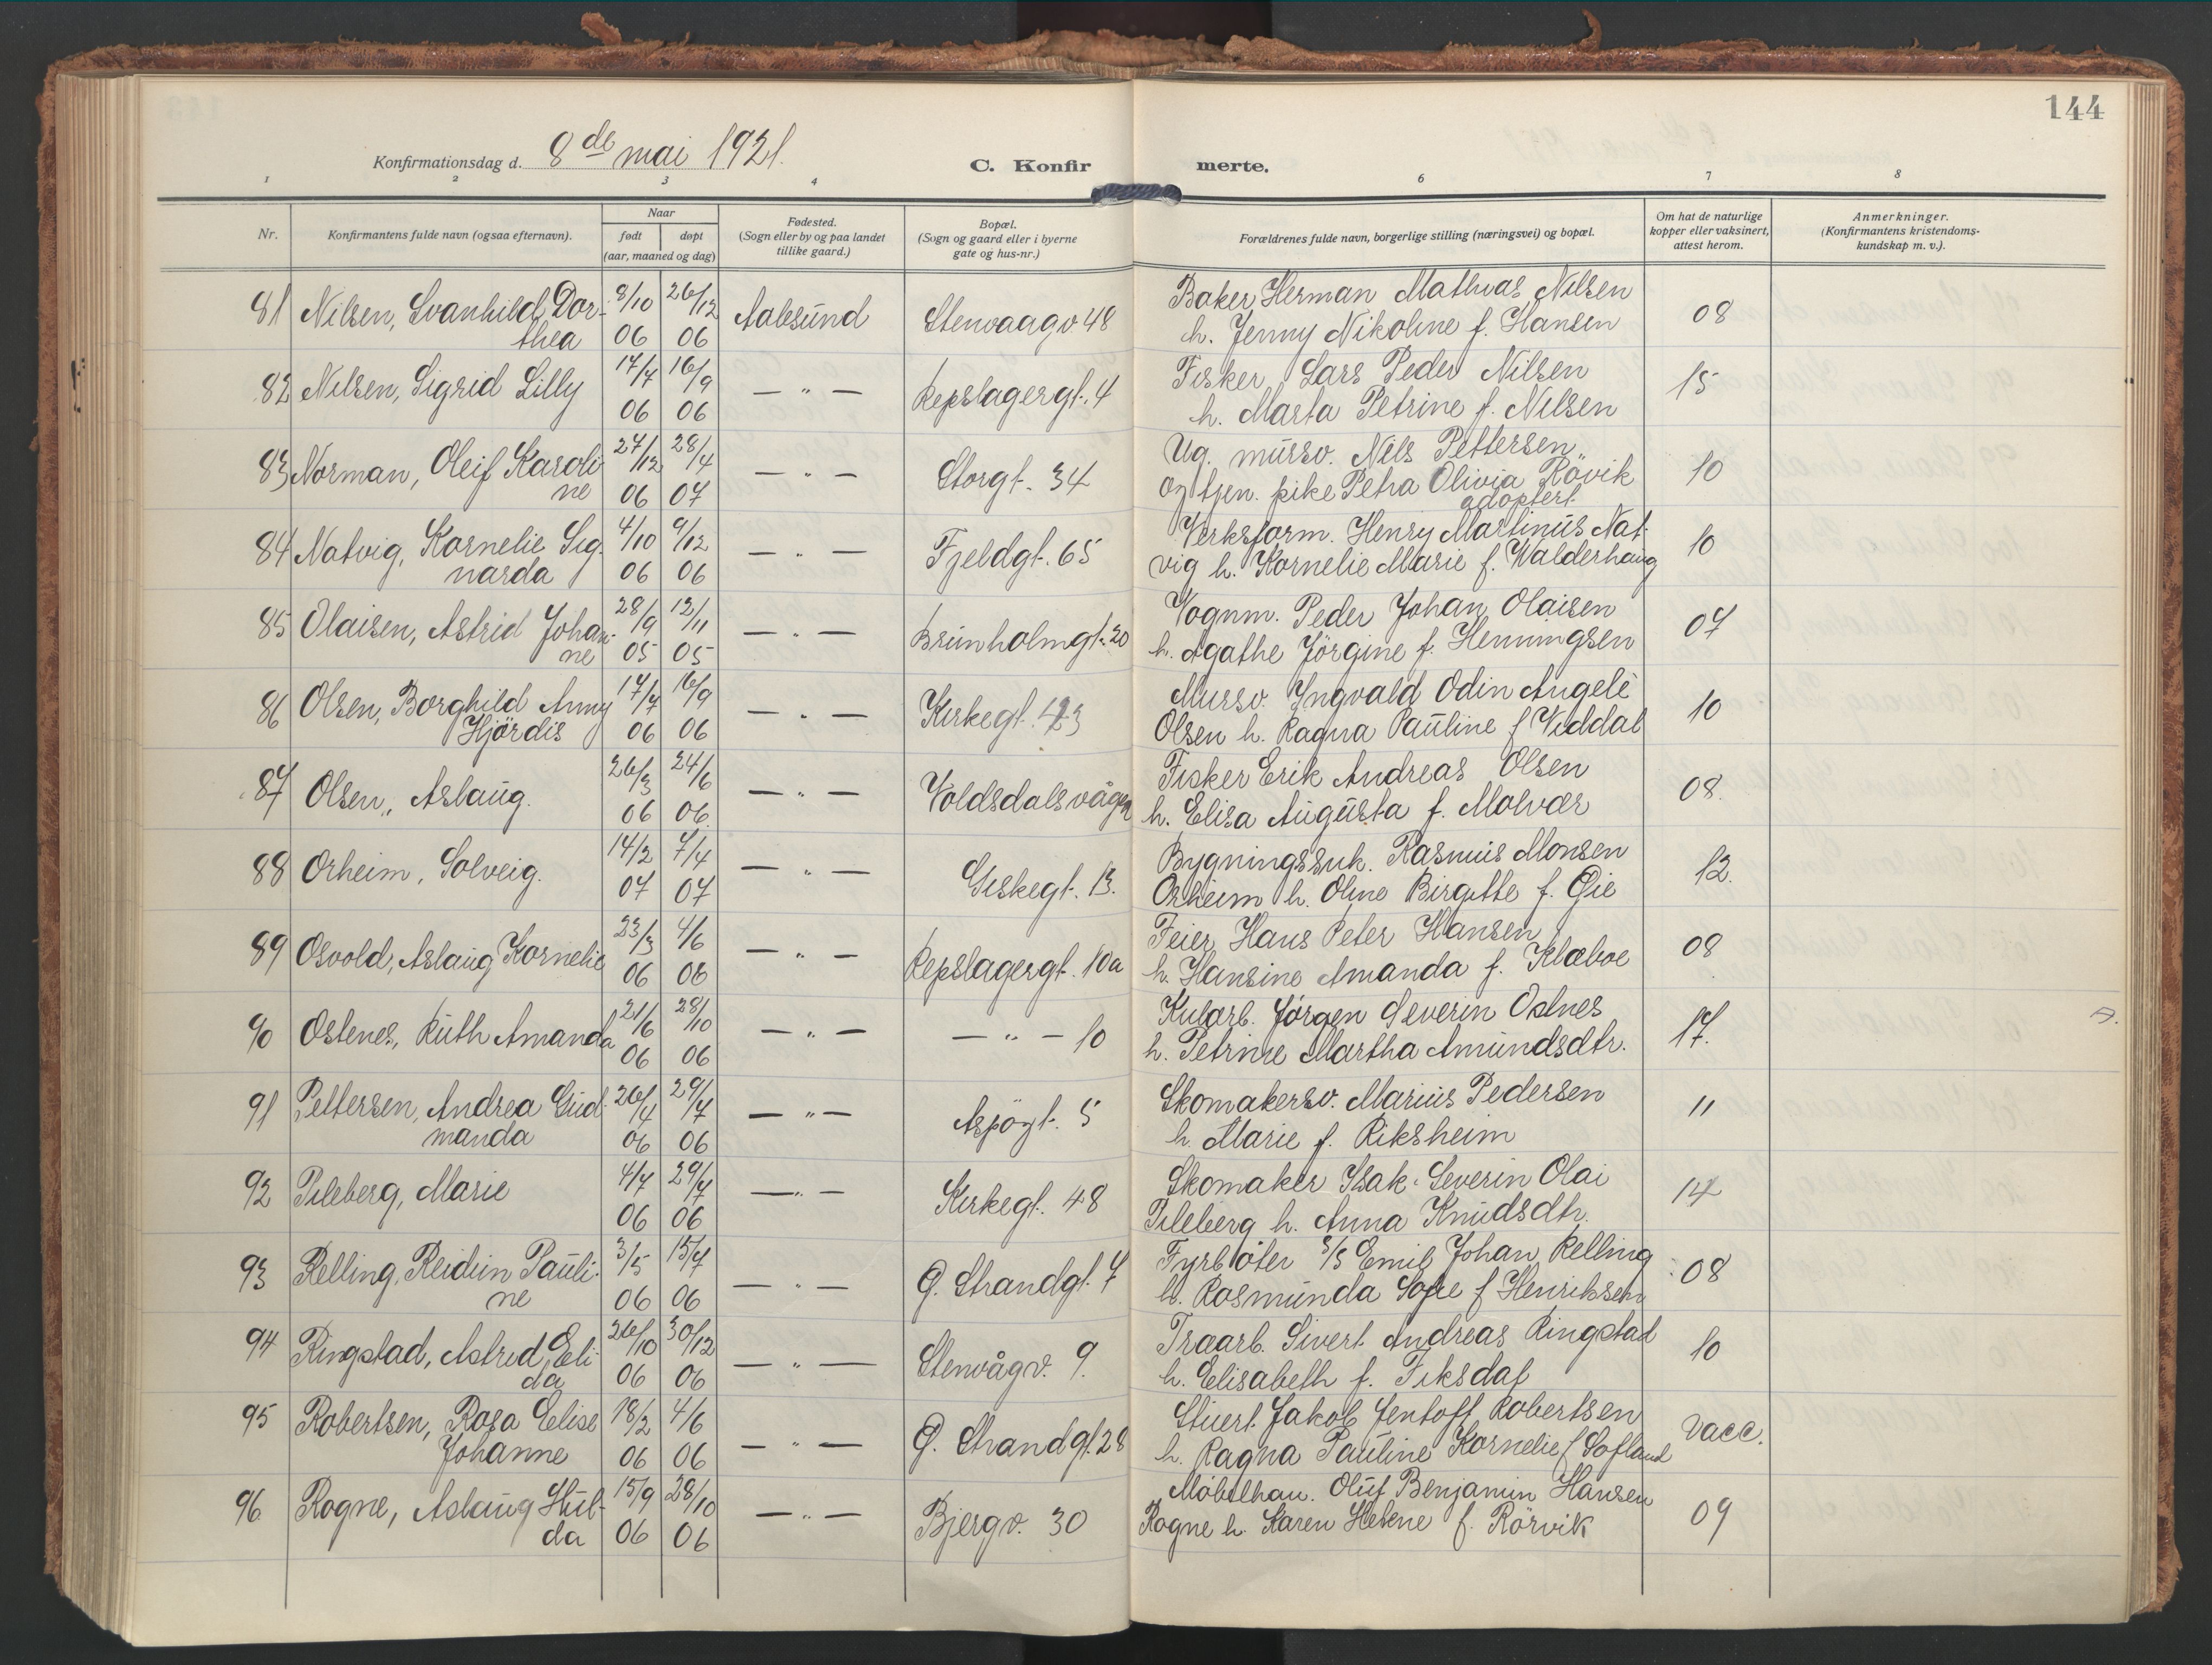 144
Konfirmationsdag d. 8de mai 1921.
C. Konfir merte.
1 2 3 4 6 7 8
Nr.
Konfirmantens fulde navn (ogsaa efternavn).
Naar
født døpt
(aar, maaned og dag)
Fødested.
(Sogn eller by og paa landet
tillike gaard.)
Bopæl.
(Sogn og gaard eller i byerne
gate og hus-nr.)
Forældrenes fulde navn, borgerlige stilling (næringsvei) og bopæl.
Om hat de naturlige
kopper eller vaksinert,
attest herom.
Anmerkninger.
(Konfirmantens kristendoms-
kundskap m. v.).
81 Nilsen, Svanhild Dor- 8/10 26/12 Aalesund Stenvaagv 48 Baker Herman Mathias Nilsen 08
thea 06 06 h. Jenny Nikoline f. Hansen
82 Nilsen, Sigrid Lilly 17/7 16/9 — " — Repslagergt. 4 Fisker Lars Peder Nilsen 15
06 06 h. Marta Petrine f. Nilsen
83 Norman, Oleif Karoli- 27/12 28/4 — " — Storgt. 34 Ug. murso. Nils Pettersen 10
ne 06 07 og tjen. pike Petra Olivia Rövik
adoptert
84 Natvig, Kornelie Sig- 4/10 9/12 — " — Fjeldgt. 65 Verksform. Henry Martinus Nat- 10
narda 06 06 vig h. Kornelie Marie f. Walderhaug
85 Olaisen, Astrid Johan- 28/9 12/11 — " — Brunholmgt. 20 Vognm. Peder Johan Olaisen 07
ne 05 05 h. Agathe Jörgine f. Henningsen
86 Olsen, Borghild Anny 17/7 16/9 — " — Kirkegt. Mursv. Yngvald Odin Angele 10
Hjördis 06 06 Olsen h. Ragna Pauline f Viddal
87 Olsen, Aslaug. 26/3 24/6 — " — Voldsdalsvågen Fisker Erik Andreas Olsen 08.
06 06 h. Elisa Augusta f. Molvær
88 Orheim, Solveig. 14/2 7/4 — " — Giskegt. 13. Bygningssnk. Rasmus Monsen 12.
07 07 Orheim h. Oline Birgitte f. Gie
89 Osvold, Aslaug Kornelie 23/3 4/6 — " — Repslagergt. 10a Feier Hans Peter Hansen 08
06 06 h. Hansine Amanda f. Klæboe
90 Ostenes, Ruth Amanda 21/6 28/10 — " — — " — 10 Kularb. Jørgen Severin Ostnes 17.
06 06 h. Petrine Martha Amundsdtr.
91 Pettersen, Andrea Gud- 26/4 29/7 — " — Aspögt. 5 Skomakersv. Marius Pedersen 11
manda 06 06 h. Marie f. Riksheim
92 Pileberg, Marie 4/7 29/7 — " — Kirkegt. 48 Skomaker Isak Severin Olai 14
06 06 Pileberg h. Anna Knudsdtr.
93 Relling, Reidun Pauli- 3/5 15/7 — " — Ø. Strandgt. 7 Fyrböter s/s Emil Johan Relling 08
ne 06 06 h. Rasmunda Sofie f Henriksen
94 Ringstad, Astrid Eli- 26/10 30/12 — " — Stenvågv. 9. Traarb. Sivert Andreas Ringstad 10
da 06 06 h. Elisabeth f. Fiksdal
95 Robertsen, Rosa Elise 18/2 4/6 — " — Ø. Strandgt. 28 Stuert Jakob Jentoft Robertsen vacc.
Johanne 06 06 h. Ragna Pauline Kornelie f Sofland
96 Rogne, Aslaug Hul- 15/9 28/10 — " — Bjergv. 30 Möbelhan. Oluf Benjamin Hansen 09
da 06 06 Rogne h. Karen Helene f. Rörvik